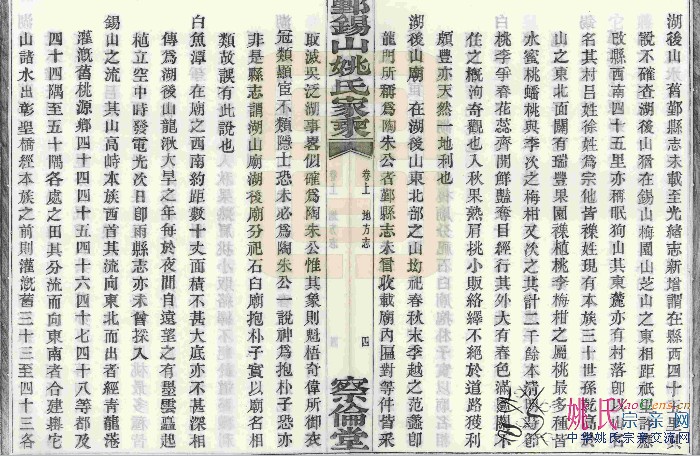 湖後山 舊鄞縣志未載至光緒志新增謂在縣西四十里其
說不確查湖後山猶在錫山梅園山芝山之東相距祇里許應
改縣西南四十五里亦稱眠狗山其東麓亦有村落卽以山
爲名其村呂姓徐姓爲宗他皆襍姓現有本族三十世孫
山之東北面關有瑞豐果園襍植桃李梅柑之屬桃最多種皆
水蜜桃蟠桃與李次之梅柑又次之共計二千餘本清明
白桃李爭春花蕊齊開鮮豔奪目經行其外大有春色滿園關不
住之槪洵奇觀也入秋果熟肩挑小販絡繹不絕於道路獲利
頗豊亦天然一地利也
湖後山廟 在湖後山東北部之山坳祀春秋末季越之范蠡卽
龍門所稱爲陶朱公者鄞縣志未曾收載廟內匾對等件皆采
鄞錫山姚氏家乘
卷上 地方志
四
察倫堂
取滅吳泛湖事畧似確爲陶朱公惟其象則魁梧奇偉所御衣
冠類顯宦不類隱士恐未必爲陶朱公一說神爲抱朴子恐亦
非是縣志謂湖山廟湖後廟分祀石白廟抱朴子實以廟名相
類故誤有此說也
白魚潭 在廟之西南約距數十丈面積不甚大底亦不甚深相
傳爲湖後山龍湫大旱之年每於夜間自遠望之有墨雲矗起
植立空中時發電光次日卽雨縣志亦未曾採入
錫山之流 其山高峙本族西首其流向東北而出者經青龍港
灌溉舊桃源鄉四十四四十五四十六四十七四十八等都及
四十四隅至五十隅各處之田其分流而向東南者合建嶴它
山諸水出彰聖橋經本族之前則灌溉舊三十三至四十三各
姚氏宗亲网
中华姚氏宗亲交流网